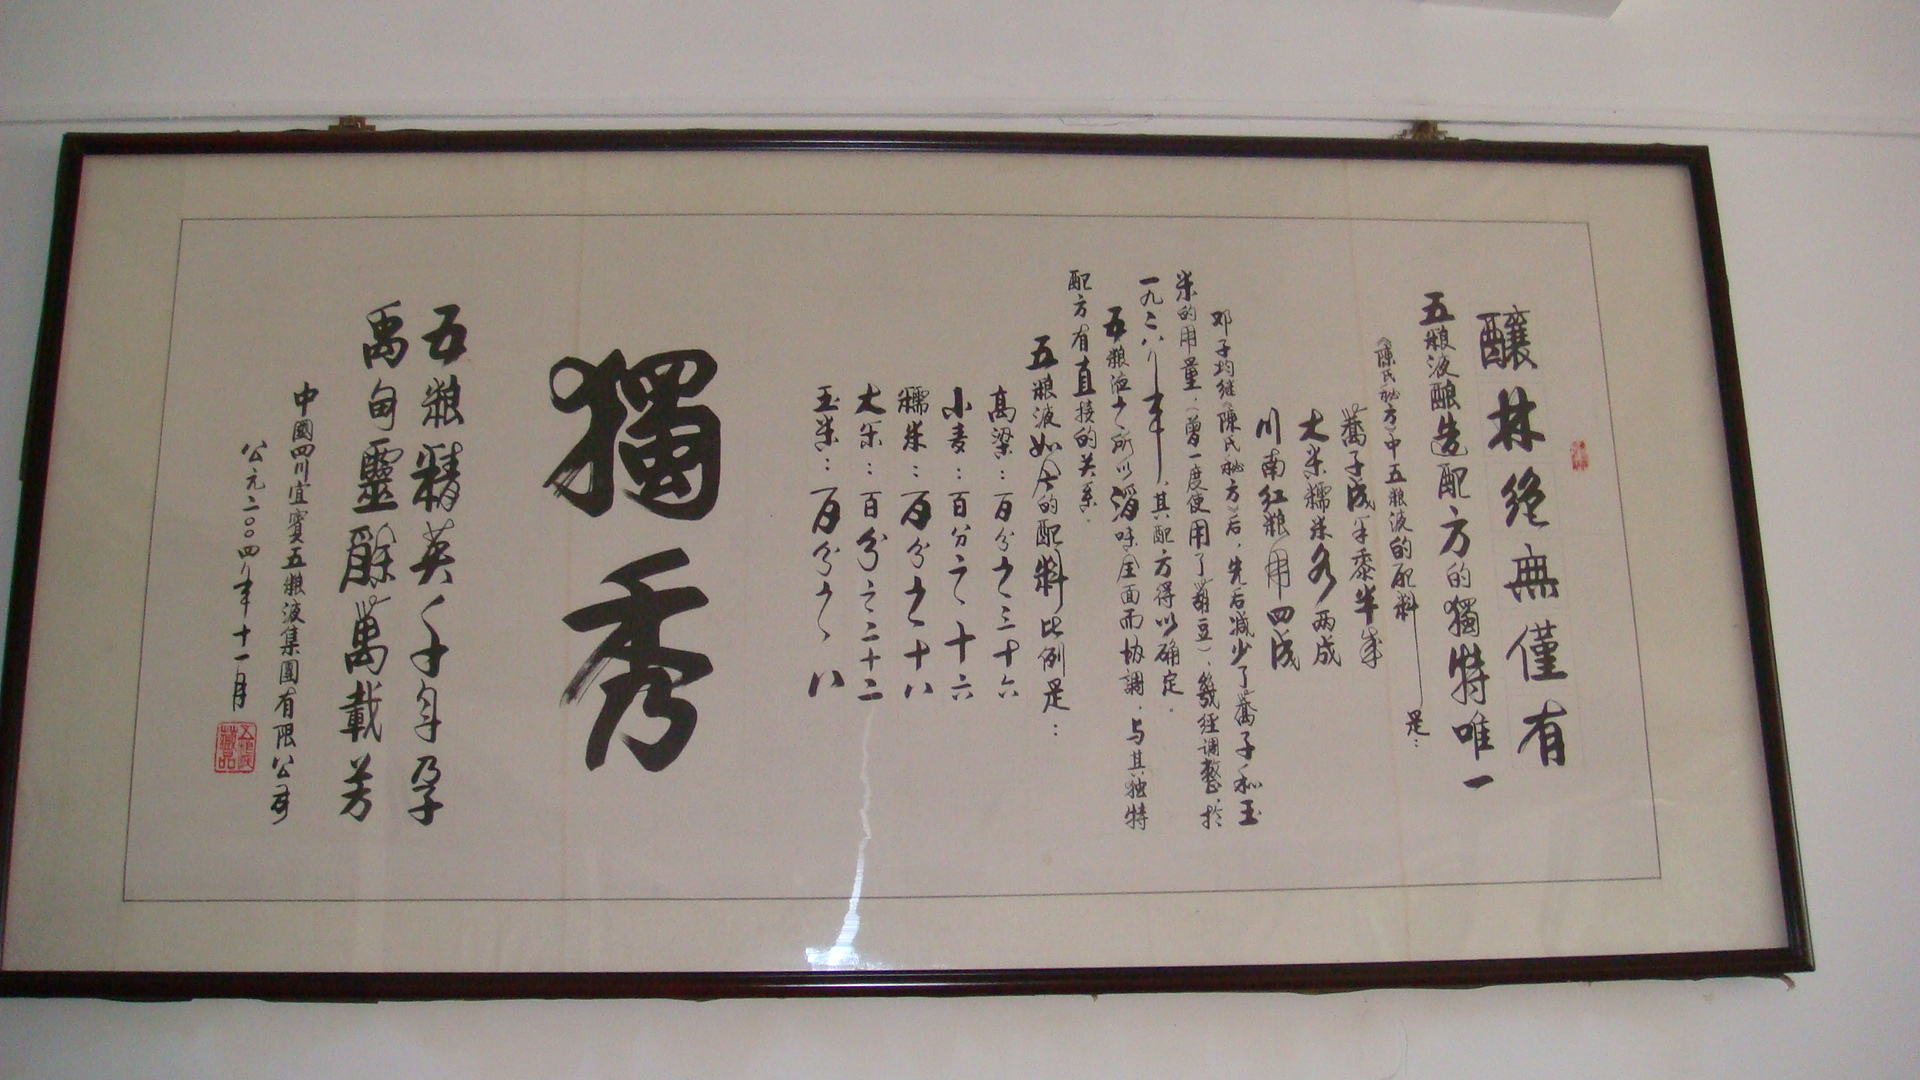 釀林絶無僅有
五粮液酿造配方的獨特唯一
《陳氏秘方》中五粮液的配料——是：
蕎子成半黍半成
大米糯米各两成
川南红粮用四成
邓子均继《陳氏秘方》后，先后减少了蕎子和玉
米的用量，（曾一度使用了豌豆），幾经调整，於
一九二八年——，其配方得以确定。
五粮液之所以滔味全面而协調，与其独特
配方有直接的关系。
五粮液如今的配料比例是：
高粱：百分之三十六
小麦：百分之十六
糯米：百分之十八
大米：百分之二十二
玉米：百分之八
獨秀
五粮精英千年孕
禹甸靈酴萬載芳
中國四川宜賓五粮液集團有限公司
公元二〇〇四年十一月